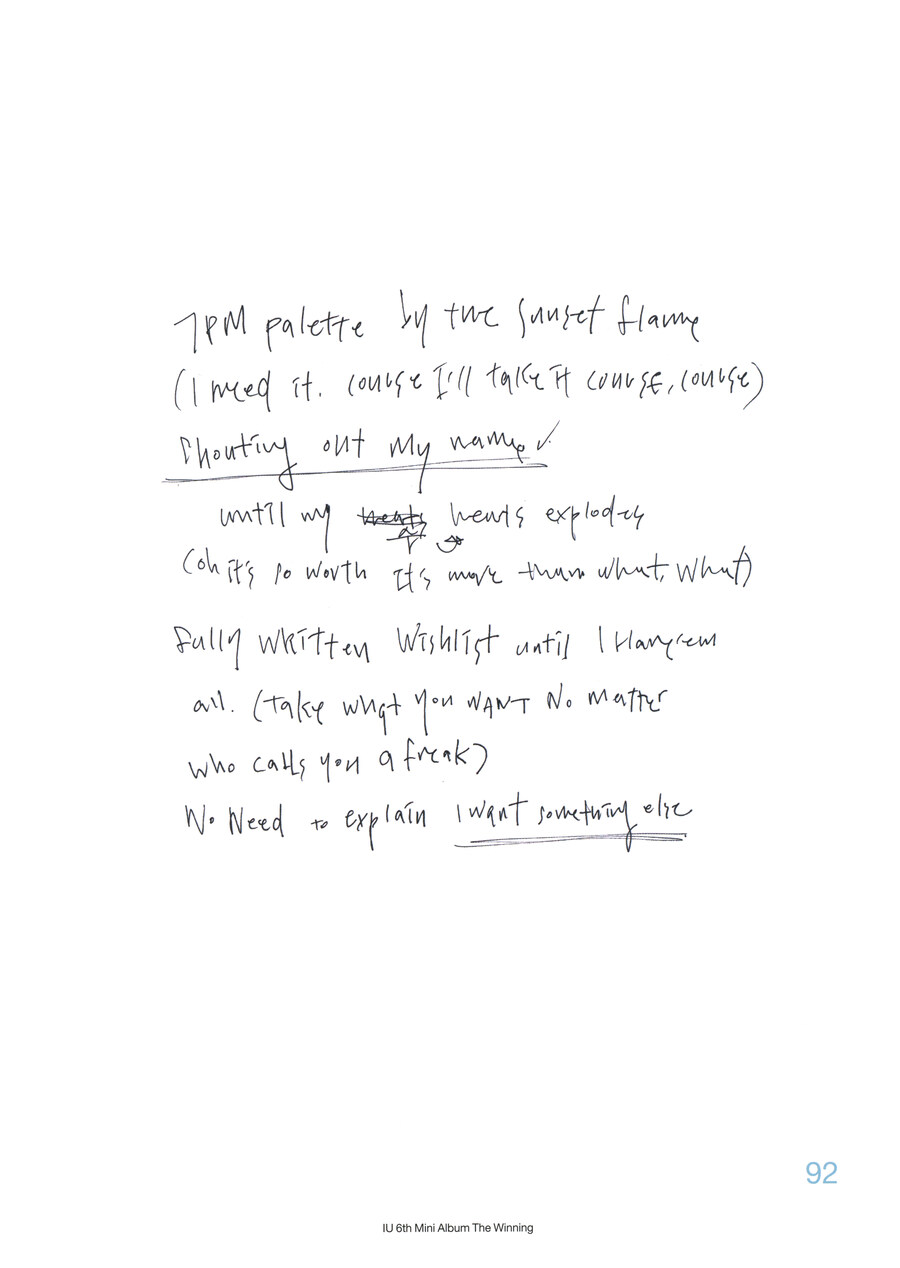 7PM palette by the sunset flame
(I need it. course I'll take it course, course)
Shouting out my name ✓
until my hearts explodes
(oh it's so worth it's more than what, what)
Fully written wishlist until I
all. (take what you WANT No matter
who calls you a freak)
No Need to explain I want something else
92
IU 6th Mini Album The Winning